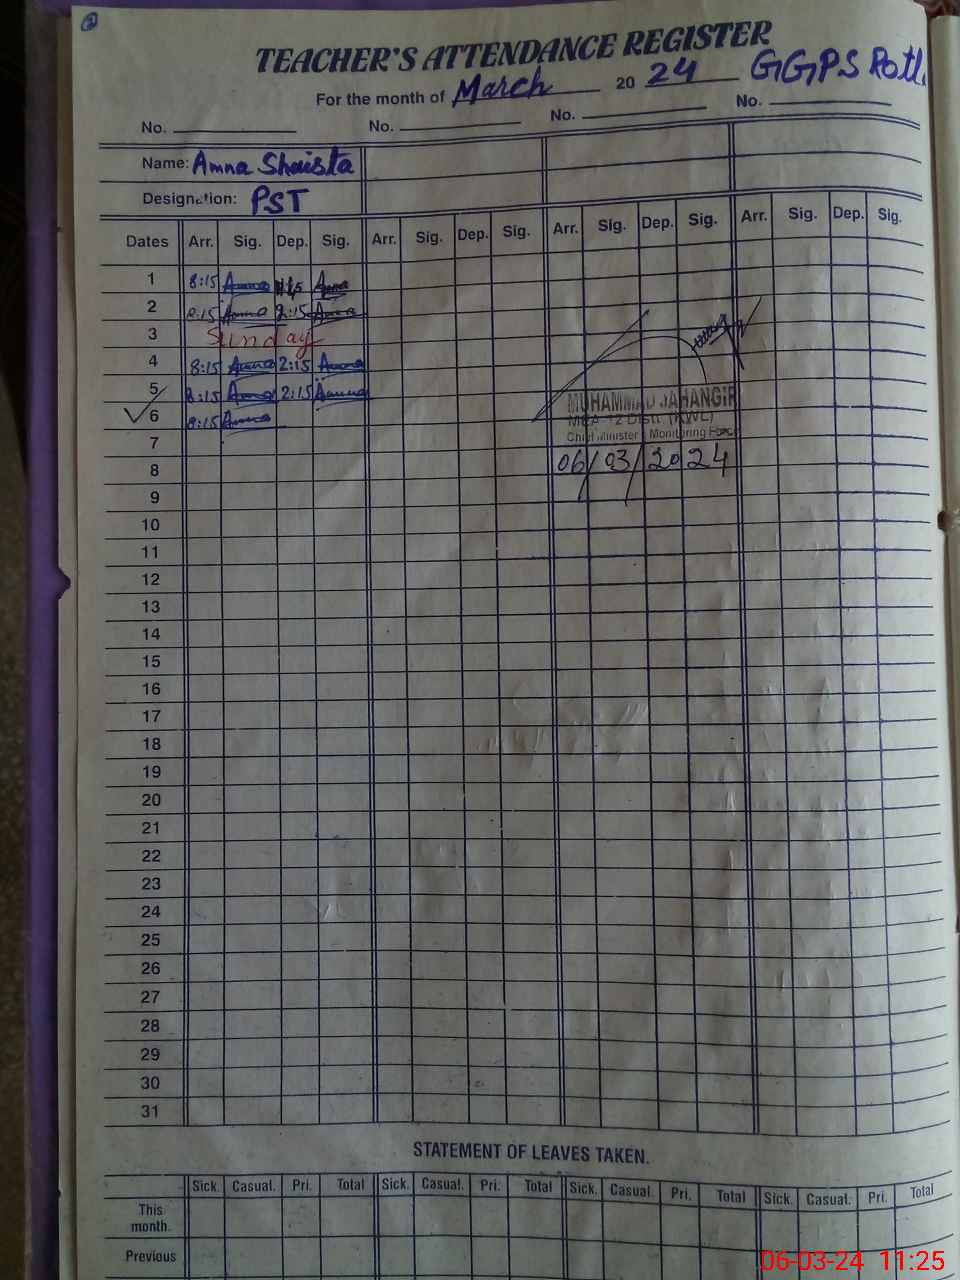 TEACHER'S ATTENDANCE REGISTER
For the month of March 20 24 GGPS
No. No. No. No.
Name: Amna Shaista
Designation: PST
Dates Arr. Sig. Dep. Sig. Arr. Sig. Dep. Sig. Arr. Sig. Dep. Sig. Arr. Sig. Dep. Sig.
1 8:15 Amna Amna
2 8:15 Amna 2:15 Amna
3 Sunday
4 8:15 Amna 2:15 Amna
5 8:15 Amna 2:15 Amna
6 8:15 Amna
MUHAMMAD JAHANGIR
MEA-12 Distt (KWL)
Chief Minister's Monitoring Force
7
8 06/03/2024
9
10
11
12
13
14
15
16
17
18
19
20
21
22
23
24
25
26
27
28
29
30
31
STATEMENT OF LEAVES TAKEN.
Sick. Casual. Pri. Total Sick. Casual. Pri. Total Sick. Casual. Pri. Total Sick. Casual. Pri. Total
This
month.
Previous
06-03-24 11:25